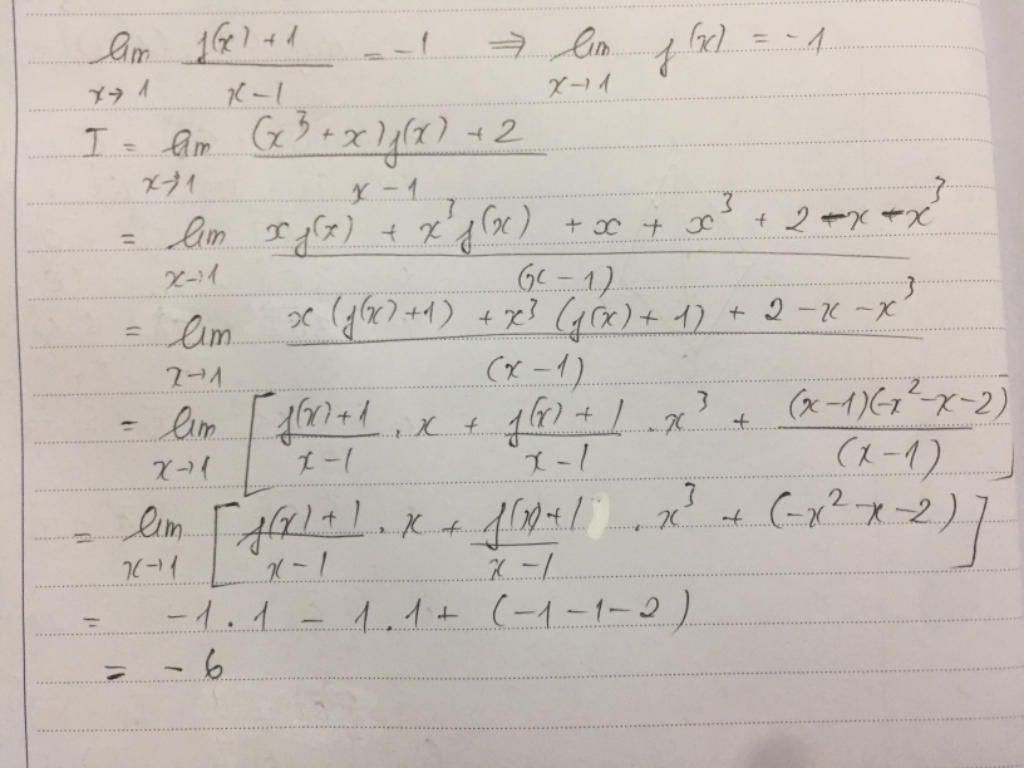 lim x→1 (f(x) + 1)/(x - 1) = -1 ⇒ lim x→1 f(x) = -1
I = lim x→1 ((x³ + x) f(x) + 2)/(x - 1)
= lim x→1 (x f(x) + x³ f(x) + x + x³ + 2 - x - x³)/(x - 1)
= lim x→1 (x (f(x) + 1) + x³ (f(x) + 1) + 2 - x - x³)/(x - 1)
= lim x→1 [ (f(x) + 1)/(x - 1) . x + (f(x) + 1)/(x - 1) . x³ + ((x - 1)(-x² - x - 2))/(x - 1) ]
= lim x→1 [ (f(x) + 1)/(x - 1) . x + (f(x) + 1)/(x - 1) . x³ + (-x² - x - 2) ]
= -1 . 1 - 1 . 1 + (-1 - 1 - 2)
= - 6